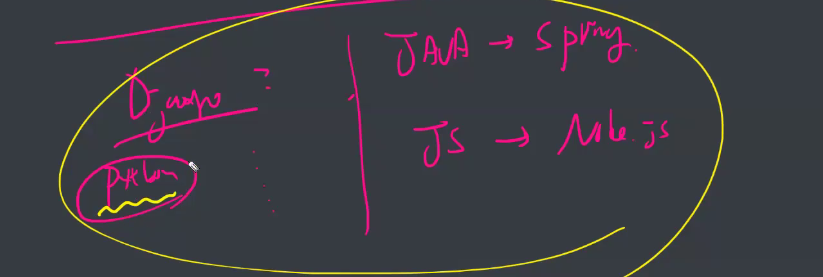 Django ?
Python
JAVA → Spring.
JS → Node.js